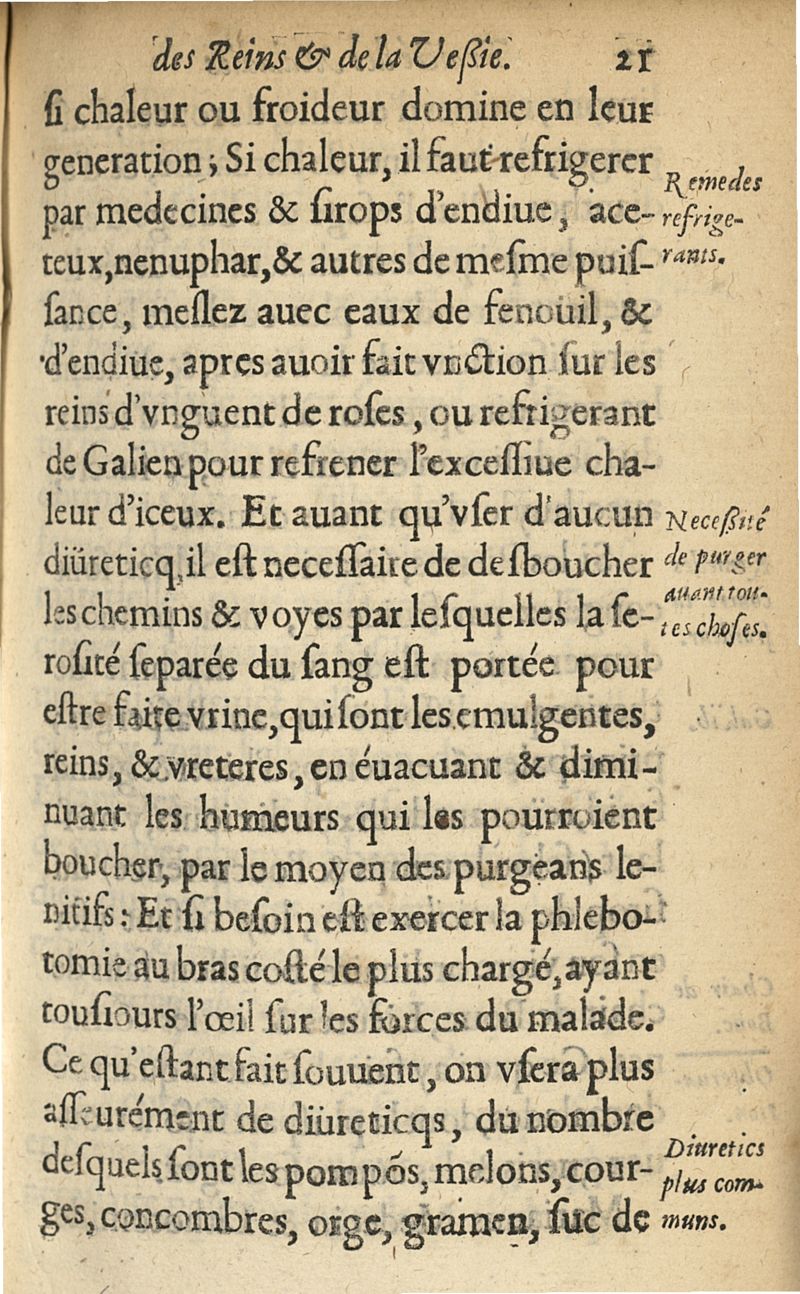 des Reins & de la Veßie. 21
ſi chaleur ou froideur domine en leur
generation; Si chaleur, il faut refrigerer
par medecines & ſirops d'endiue, ace-
teux, nenuphar, & autres de meſme puiſ-
ſance, meſlez auec eaux de fenouil, &
d'endiue, apres auoir fait vnction ſur les
reins d'vnguent de roſes, ou refrigerant
de Galien pour refrener l'exceſſiue cha-
leur d'iceux. Et auant qu'vſer d'aucun
diüreticq, il eſt neceſſaire de deſboucher
les chemins & voyes par leſquelles la ſe-
roſité ſeparée du ſang eſt portée pour
eſtre faite vrine, qui ſont les emulgentes,
reins, & vreteres, en éuacuant & dimi-
nuant les humeurs qui les pourroient
boucher, par le moyen des purgeans le-
nitifs: Et ſi beſoin eſt exercer la phlebo-
tomie au bras coſté le plus chargé, ayant
touſiours l'œil ſur les forces du malade.
Ce qu'eſtant fait ſouuent, on vſera plus
aſſeurément de diüreticqs, du nombre
deſquels ſont les pompõs, melons, cour-
ges, concombres, orge, gramen, ſuc de
Remedes
refrige-
rants.
Neceßité
de purger
auant tou-
tes choſes.
Diuretics
plus com-
muns.